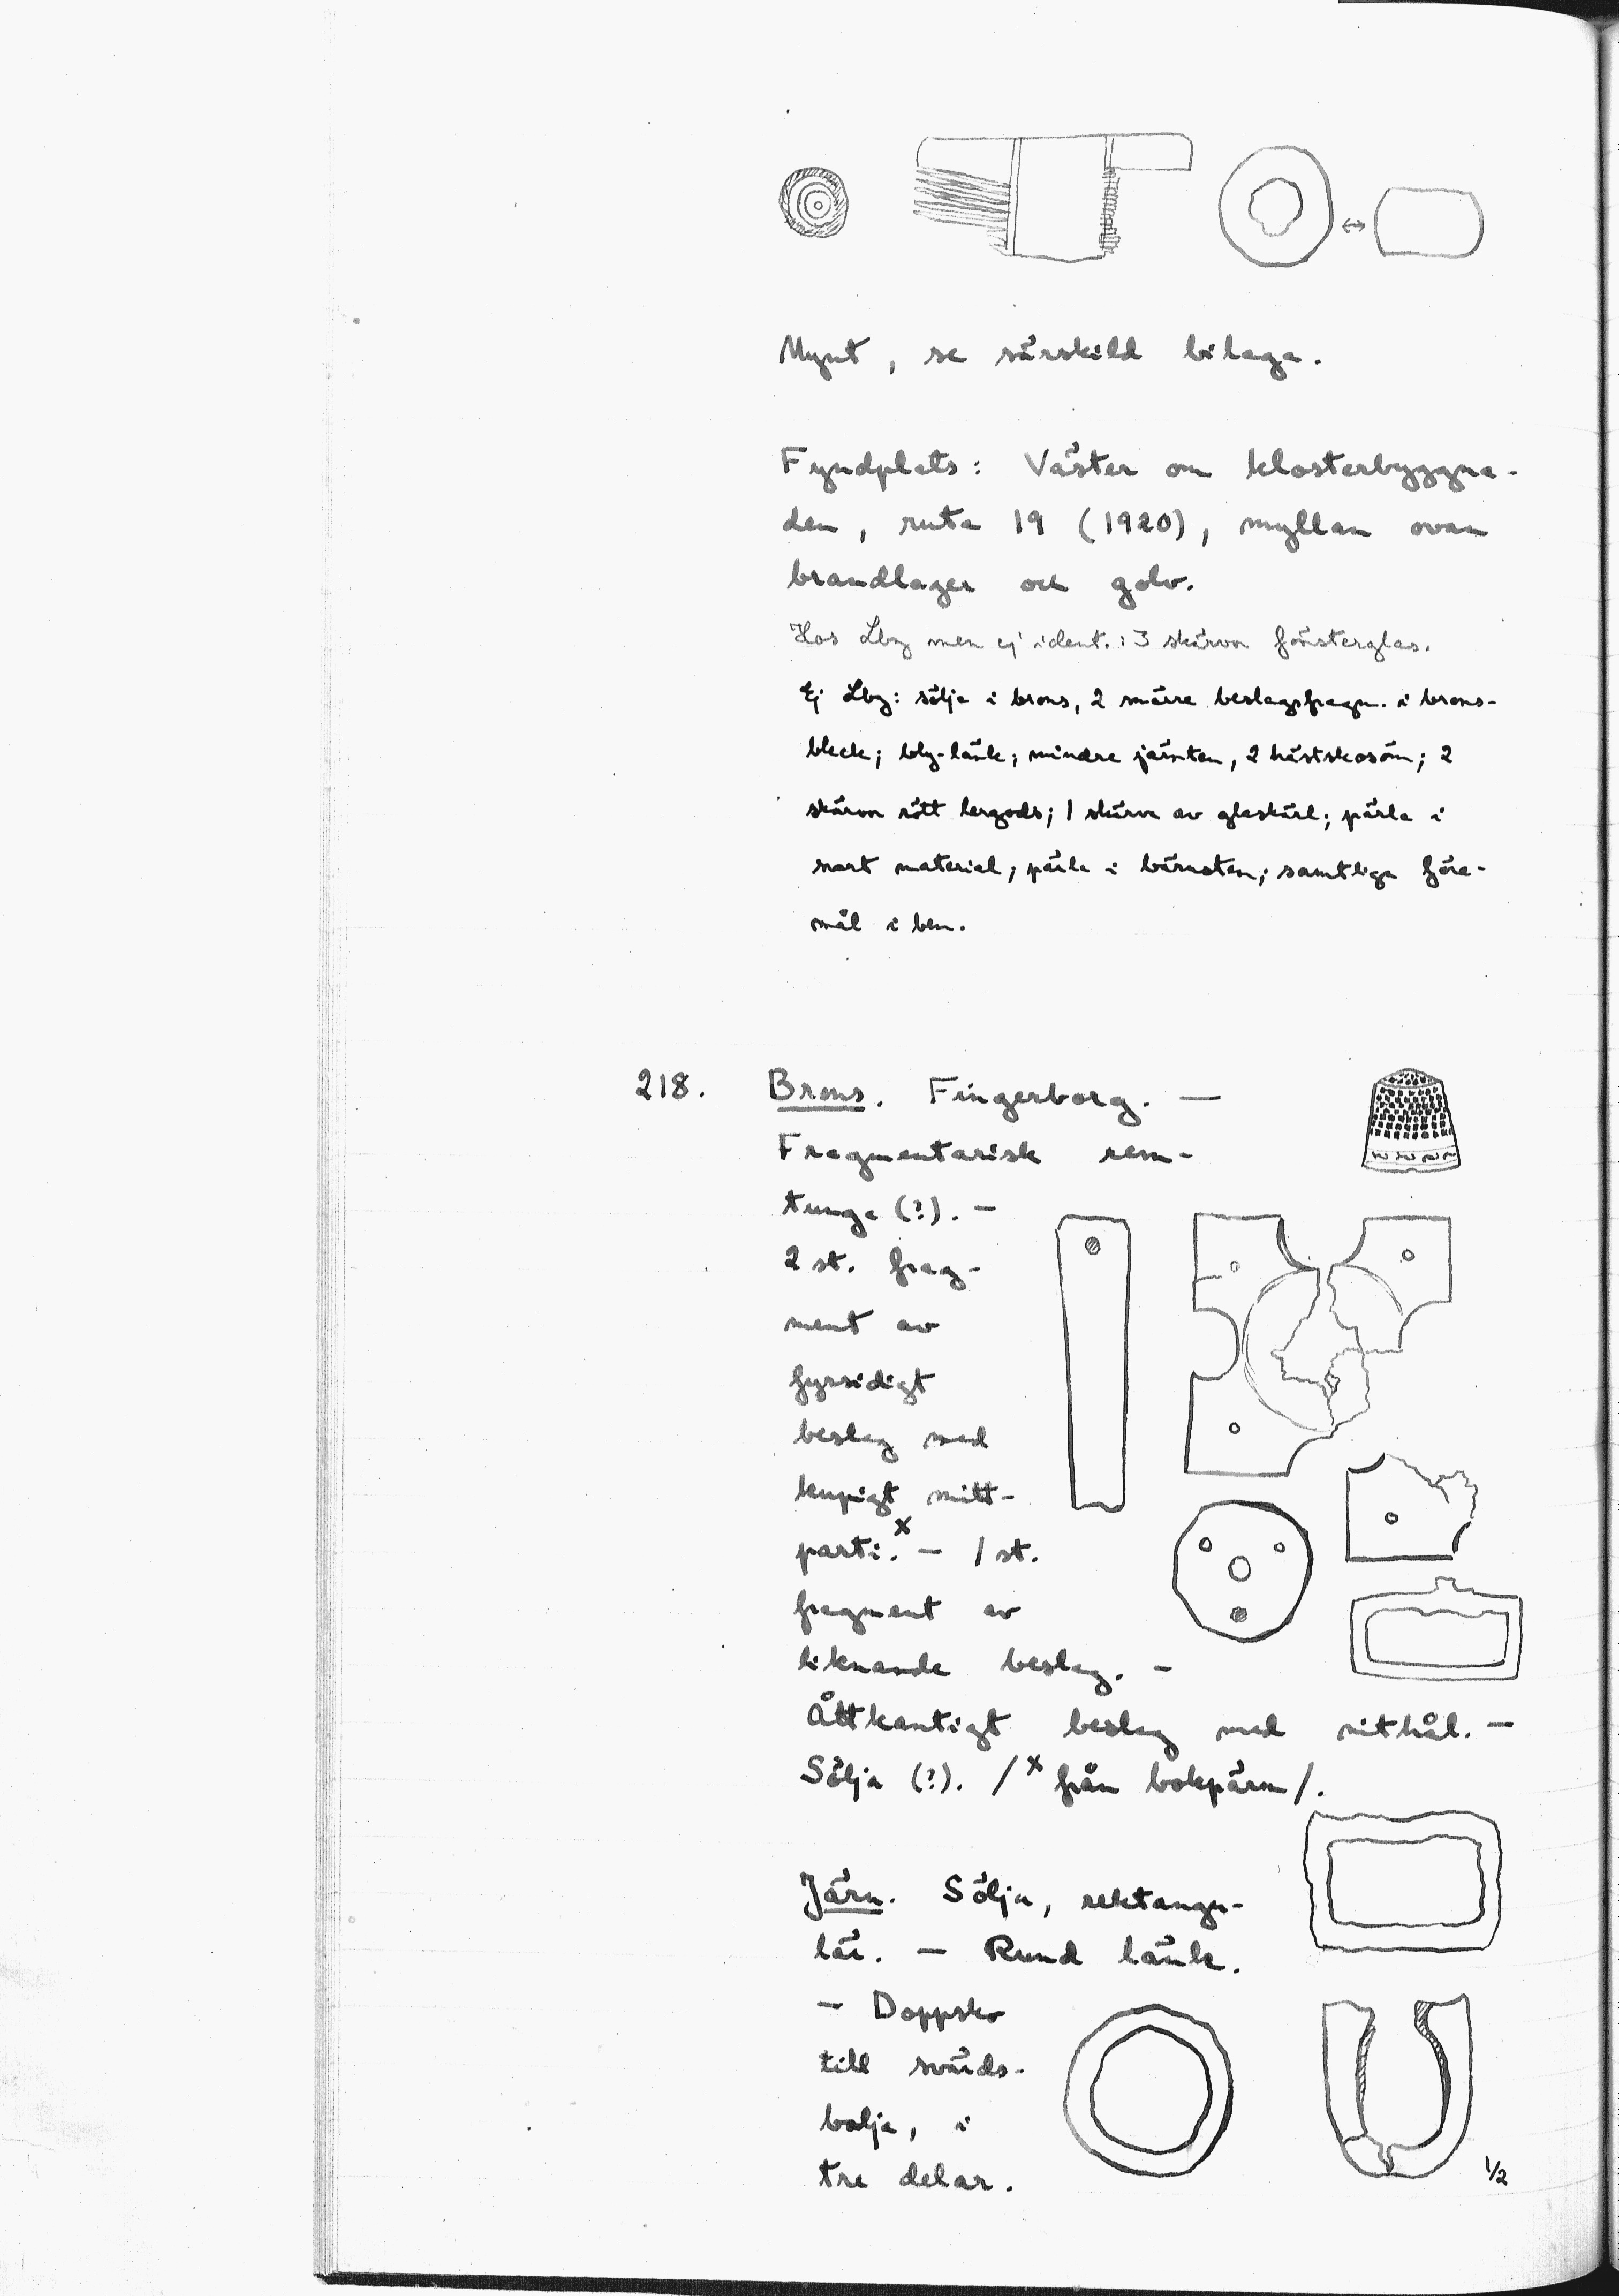 Mynt, se särskild bilaga.
Fyndplats: Väster om klosterbyggna-
den, ruta 19 (1920), myllan ovan
brandlager och golv.
Hos Lbg men ej ident.: 3 skärvor fönsterglas.
Ej Lbg: sölja i brons, 2 smärre beslagsfragm. i brons-
bleck; bly-länk; mindre järnten, 2 hästskosöm; 2
skärvor rött lergods; 1 skärva av glaskärl; pärla i
svart material; pärla i bärnsten; samtliga före-
mål i ben.
218. Brons. Fingerborg. —
Fragmentarisk rem-
tunga (?). —
2 st. frag-
ment av
fyrsidigt
beslag med
kupigt mitt-
parti.x — 1 st.
fragment av
liknande beslag. —
Åttkantigt beslag med nithål. —
Sölja (?). /x från bokpärm/.
Järn. Sölja, rektangu-
lär. — Rund länk.
— Doppsko
till svärds-
balja, i
tre delar.
1/2